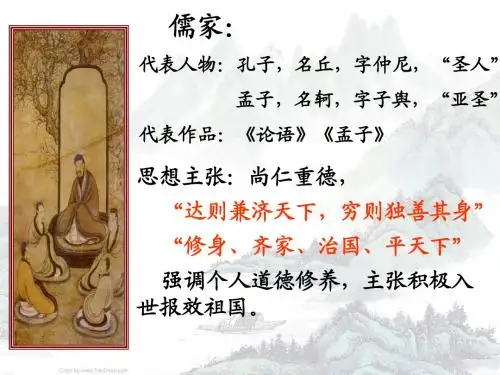 儒家：
代表人物：孔子，名丘，字仲尼，“圣人”
孟子，名轲，字子舆，“亚圣”
代表作品：《论语》《孟子》
思想主张：尚仁重德，
“达则兼济天下，穷则独善其身”
“修身、齐家、治国、平天下”
强调个人道德修养，主张积极入
世报效祖国。